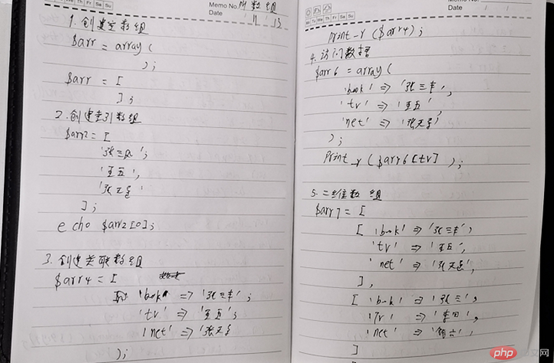 Memo No. 数组
11 13
1.创建空数组
$arr = array(
);
$arr = [
];
2.创建索引数组
$arr2=[
'张三丰',
'王五',
'张无忌'
];
echo $arr2[0];
3.创建关联数组
$arr4=[
'book' => '张三丰',
'tv' => '王五',
'net' => '张无忌'
);
Memo No.
Date
print_r($arr4);
4.访问数组
$arr6=array(
'book' => '张三丰',
'tv' => '王五',
'net' => '张无忌'
);
print_r($arr6[tv]);
5.二维数组
$arr7=[
['book' => '张三丰',
'tv' => '王五',
'net' => '张无忌',
],
['book' => '张三',
'tv' => '李四',
'net' =>
]
php